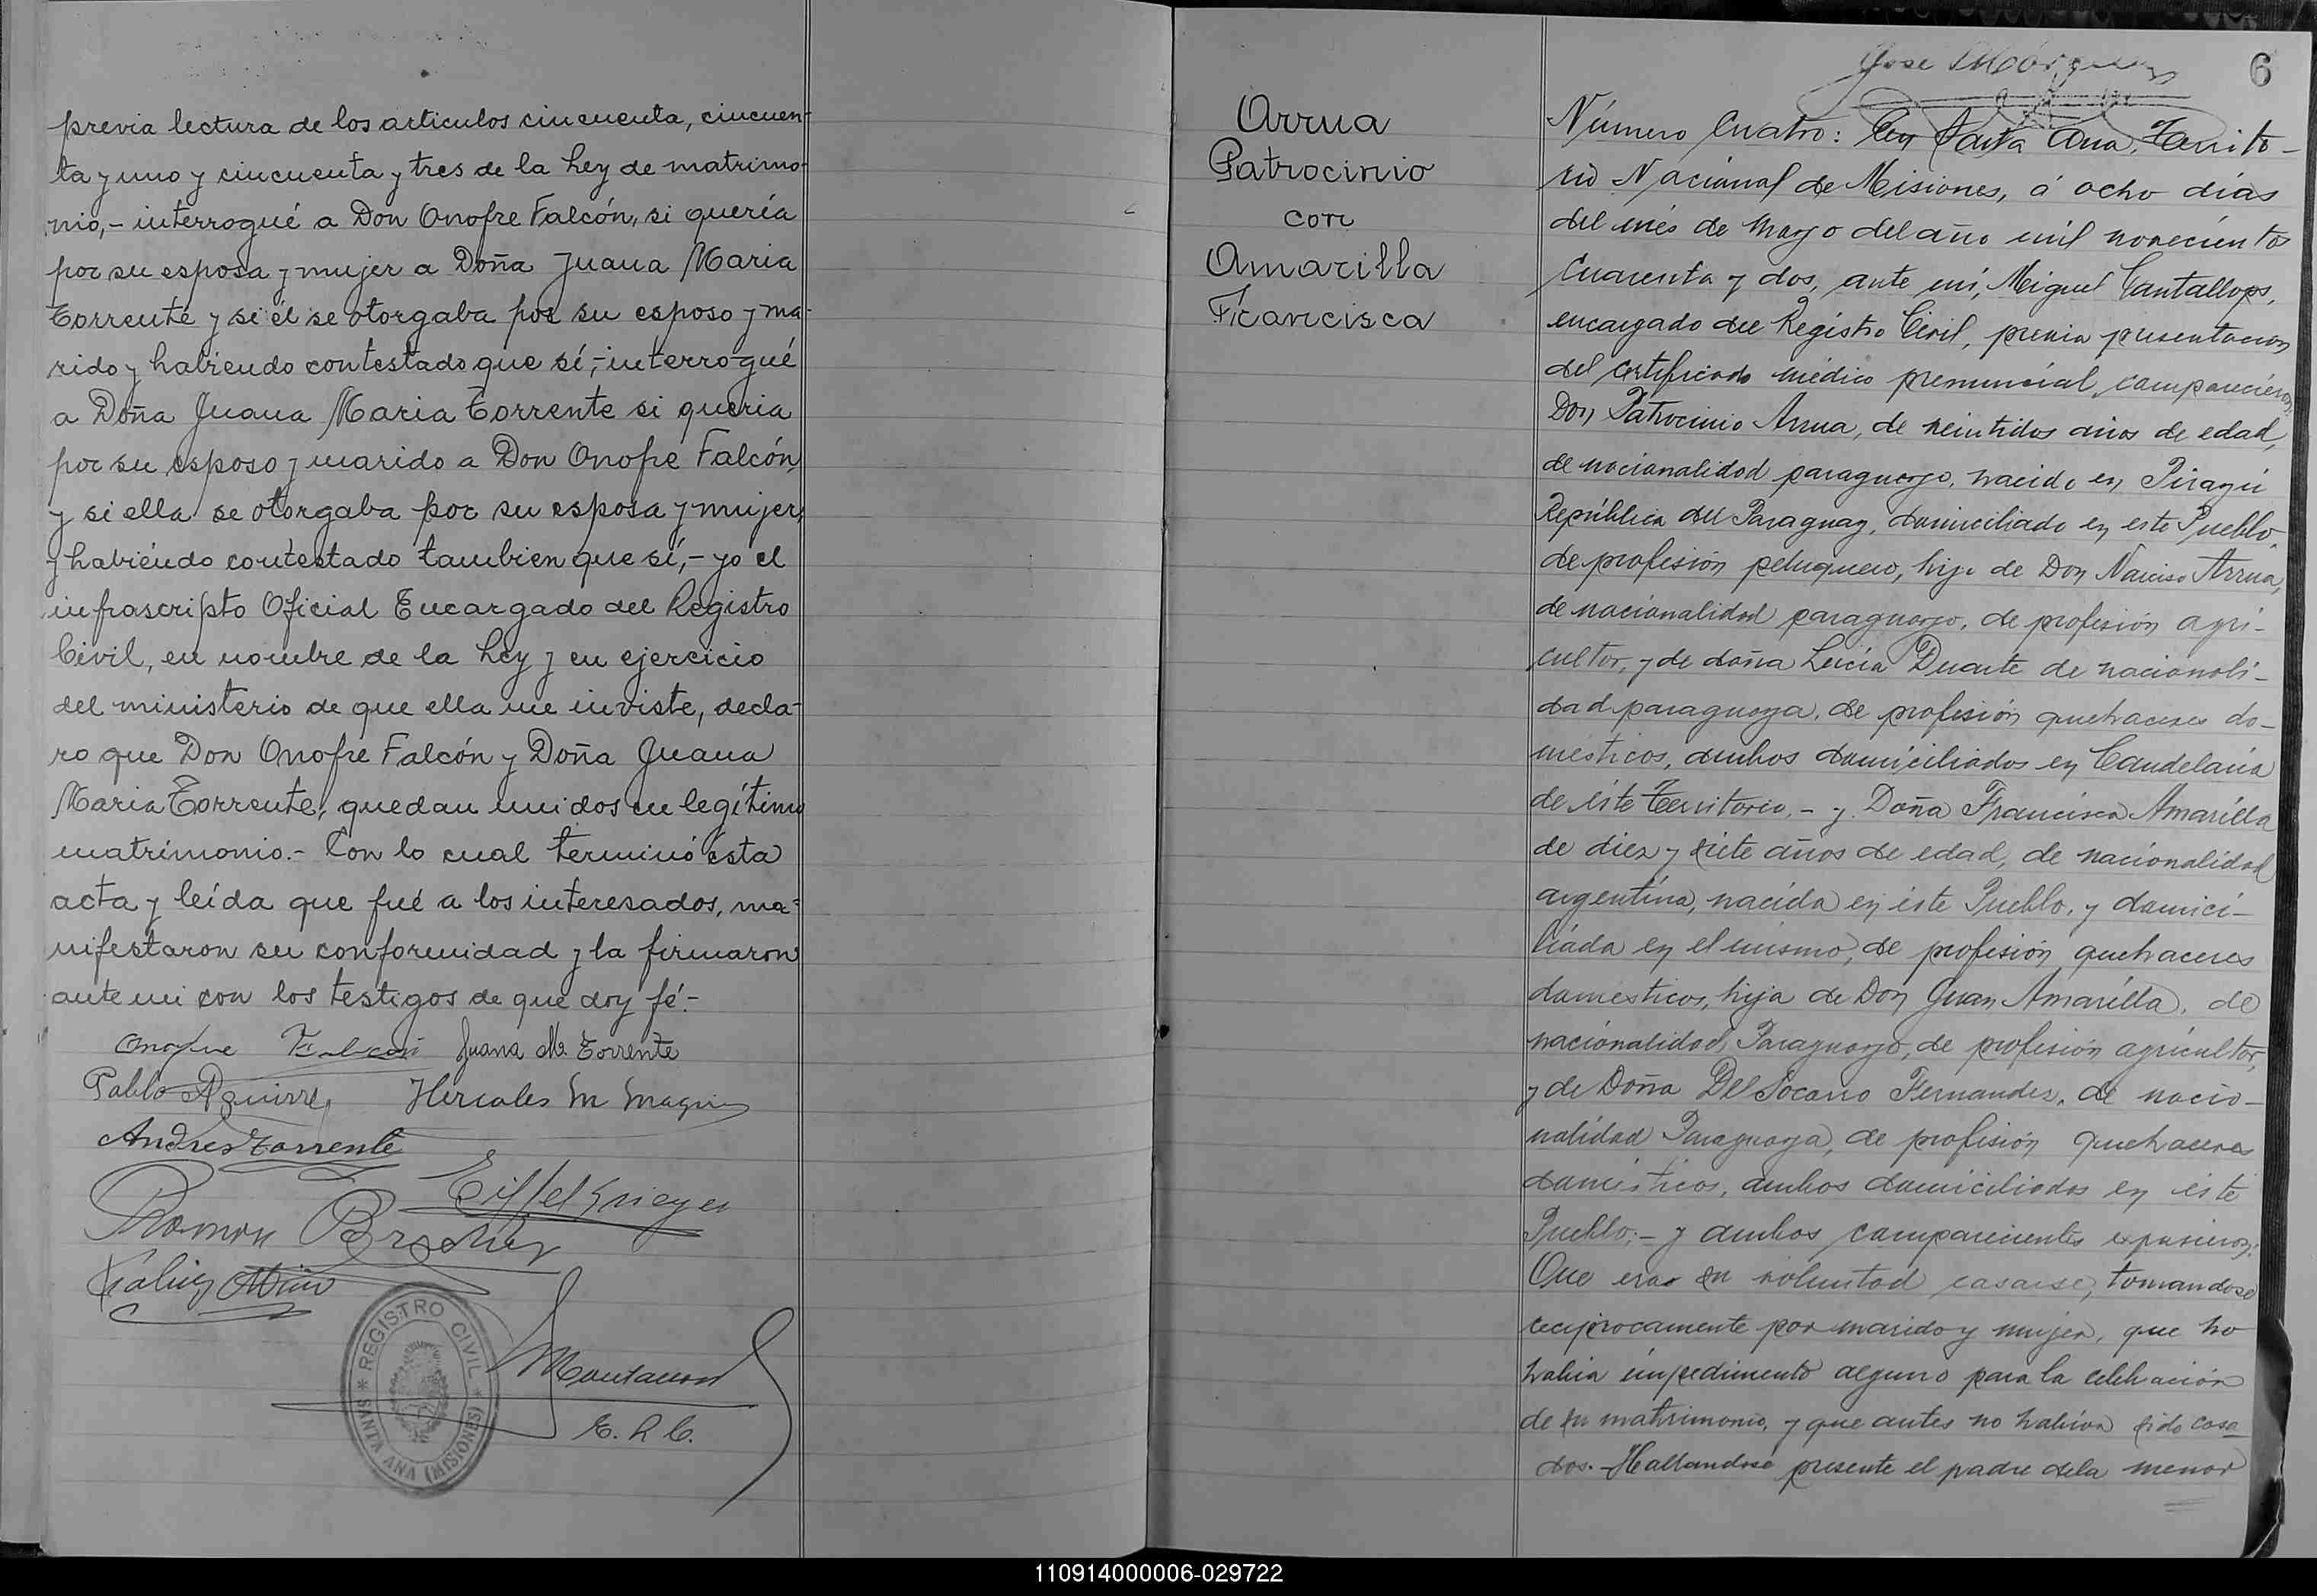 previa lectura de los articulos cincuenta, cincuen-
ta y uno y cincuenta y tres de la Ley de matrimo-
nio,- interrogué a Don Onofre Falcón, si quería
por su esposa y mujer a Doña Juana Maria
Torrente y si él se otorgaba por su esposo y ma-
rido y habiendo contestado que sí,- interrogué
a Doña Juana Maria Torrente si queria
por su esposo y marido a Don Onofre Falcón,
y si ella se otorgaba por su esposa y mujer,
y habiéndo contestado tambien que sí,- yo el
infrascripto Oficial Encargado del Registro
Civil, en nombre de la Ley y en ejercicio
del ministerio de que ella me inviste, decla-
ro que Don Onofre Falcón y Doña Juana
Maria Torrente, quedan unidos en legítimo
matrimonio.- Con lo cual terminó ésta
acta y leída que fué a los interesados, ma-
nifestaron su conformidad y la firmaron
ante mi con los testigos de que doy fé.-
Onofre Falcón Juana M. Torrente
Pablo Aguirre Hercoles M
Andres Torrente
Eiffel
Ramon
E. R. C.
REGISTRO CIVIL
SANTA ANA (MISIONES)
Arrua
Patrocinio
con
Amarilla
Francisca
Jose
6
Número Cuatro: En Santa Ana, Territo-
rio Nacional de Misiones, á ocho días
del més de Mayo del año mil novecientos
Cuarenta y dos, ante mí, Miguel Cantallops,
encargado del Registro Civil, previa presentacion
del certificado médico prenuncial, comparecieron:
Don Patrocinio Arrua, de veintidos años de edad,
de nacionalidad paraguayo, nacido en Pirayú
República del Paraguay, domiciliado en este Pueblo,
de profesión peluquero, hijo de Don Narciso Arrua,
de nacionalidad paraguayo, de profesión agri-
cultor, y de doña Lucía Duarte de nacionali-
dad paraguaya, de profesión quehaceres do-
mésticos, ambos domiciliados en Candelaria
de éste Territorio,- y Doña Francisca Amarilla
de diez y siete años de edad, de nacionalidad
argentina, nacida en éste Pueblo, y domici-
liada en el mismo, de profesión quehaceres
domesticos, hija de Don Juan Amarilla, de
nacionalidad Paraguayo, de profesión agricultor,
y de Doña Del Socorro Fernandez, de nacio-
nalidad Paraguaya, de profesión quehaceres
domésticos, ambos domiciliados en éste
Pueblo;- y ambos comparecientes expusieron:
Que era su voluntad casarse, tomandose
reciprocamente por marido y mujer, que no
habia impedimento alguno para la celebración
de su matrimonio, y que antes no habian sido casa
dos.- Hallandose presente el padre de la menor
110914000006-029722